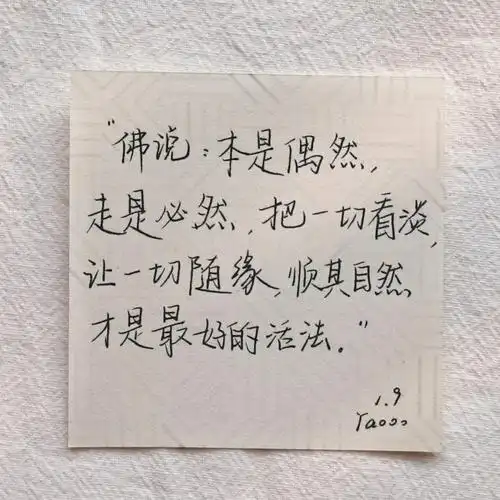 "佛说：本是偶然，
走是必然，把一切看淡，
让一切随缘，顺其自然
才是最好的活法。"
1.9
Yaooo